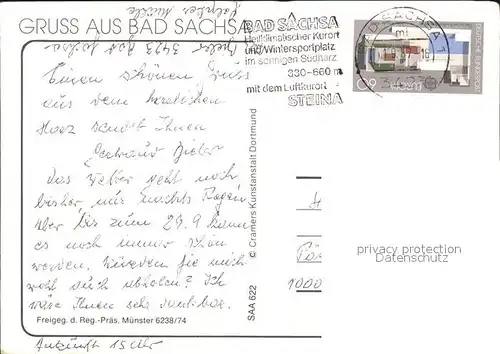 GRUSS AUS BAD SACHSA
3423 Bad Sachsa
BAD SACHSA
heilklimatischer Kurort
und Wintersportplatz
im sonnigen Südharz
330-660 m
mit dem Luftkurort
STEINA
BAD SACHSA 1
DEUTSCHE BUNDESPOST
60
Einen schönen Gruß
aus dem herrlichen
Harz sendet Ihnen
Gertraud Bieler
Das Wetter geht noch
bisher, nur nachts Regen
Aber bis zum 29.9 kann
es noch immer schön
werden. Würden Sie mich
wohl auch abholen? Ich
wäre Ihnen sehr dankbar.
Ankunft 15 Uhr
Freigeg. d. Reg.-Präs. Münster 6238/74
SAA 622
© Cramers Kunstanstalt Dortmund
1000
privacy protection
Ansichtskarten-Center.de